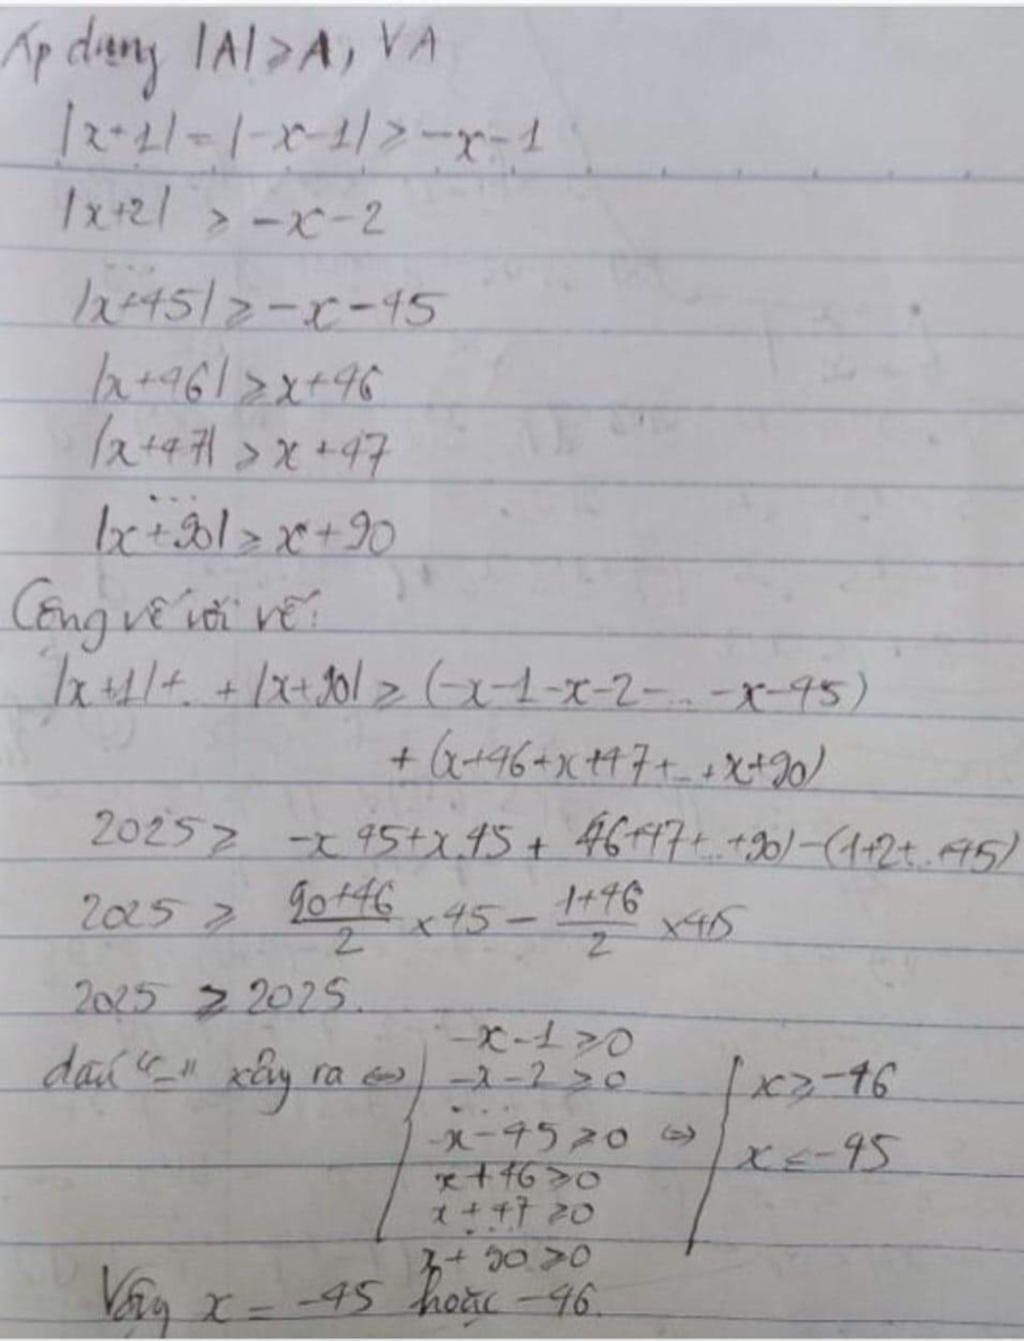 Áp dụng |A| ≥ A, ∀A
|x+1| = |-x-1| ≥ -x-1
|x+2| ≥ -x-2
...
|x+45| ≥ -x-45
|x+46| ≥ x+46
|x+47| ≥ x+47
...
|x+90| ≥ x+90
Cộng vế với vế:
|x+1|+..+|x+90| ≥ (-x-1-x-2-...-x-45)
+ (x+46+x+47+...+x+90)
2025 ≥ -x.45+x.45+ 46+47+..+90)-(1+2+..+45)
2025 ≥ \frac{90+46}{2} ×45 - \frac{1+46}{2} ×45
2025 ≥ 2025.
dấu "=" xảy ra ⇔ { -x-1≥0
-x-2≥0
...
-x-45≥0
x+46≥0
x+47≥0
...
x+90≥0
⇔ { x≥-46
x≤-45
Vậy x = -45 hoặc -46.